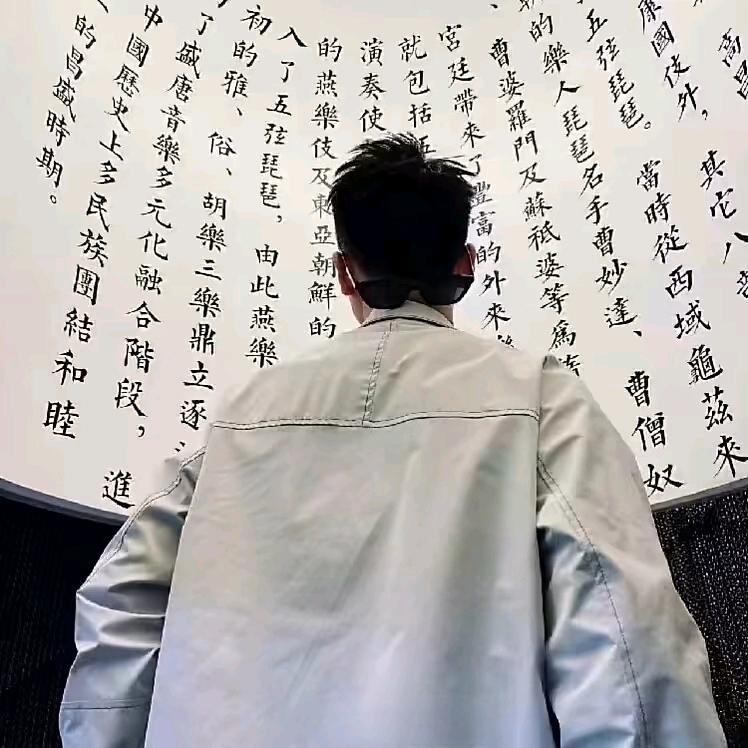 高昌
康國伎外，其它八音
五弦琵琶。當時從西域龜茲來
的樂人琵琶名手曹妙達、曹僧奴
、曹婆羅門及蘇祗婆等爲
宮廷帶來了豐富的外來
就包括五
演奏使
的燕樂伎及東亞朝鮮的
入了五弦琵琶，由此燕樂
初的雅、俗、胡樂三樂鼎立逐
了盛唐音樂多元化融合階段，進
中國歷史上多民族團結和睦
的昌盛時期。